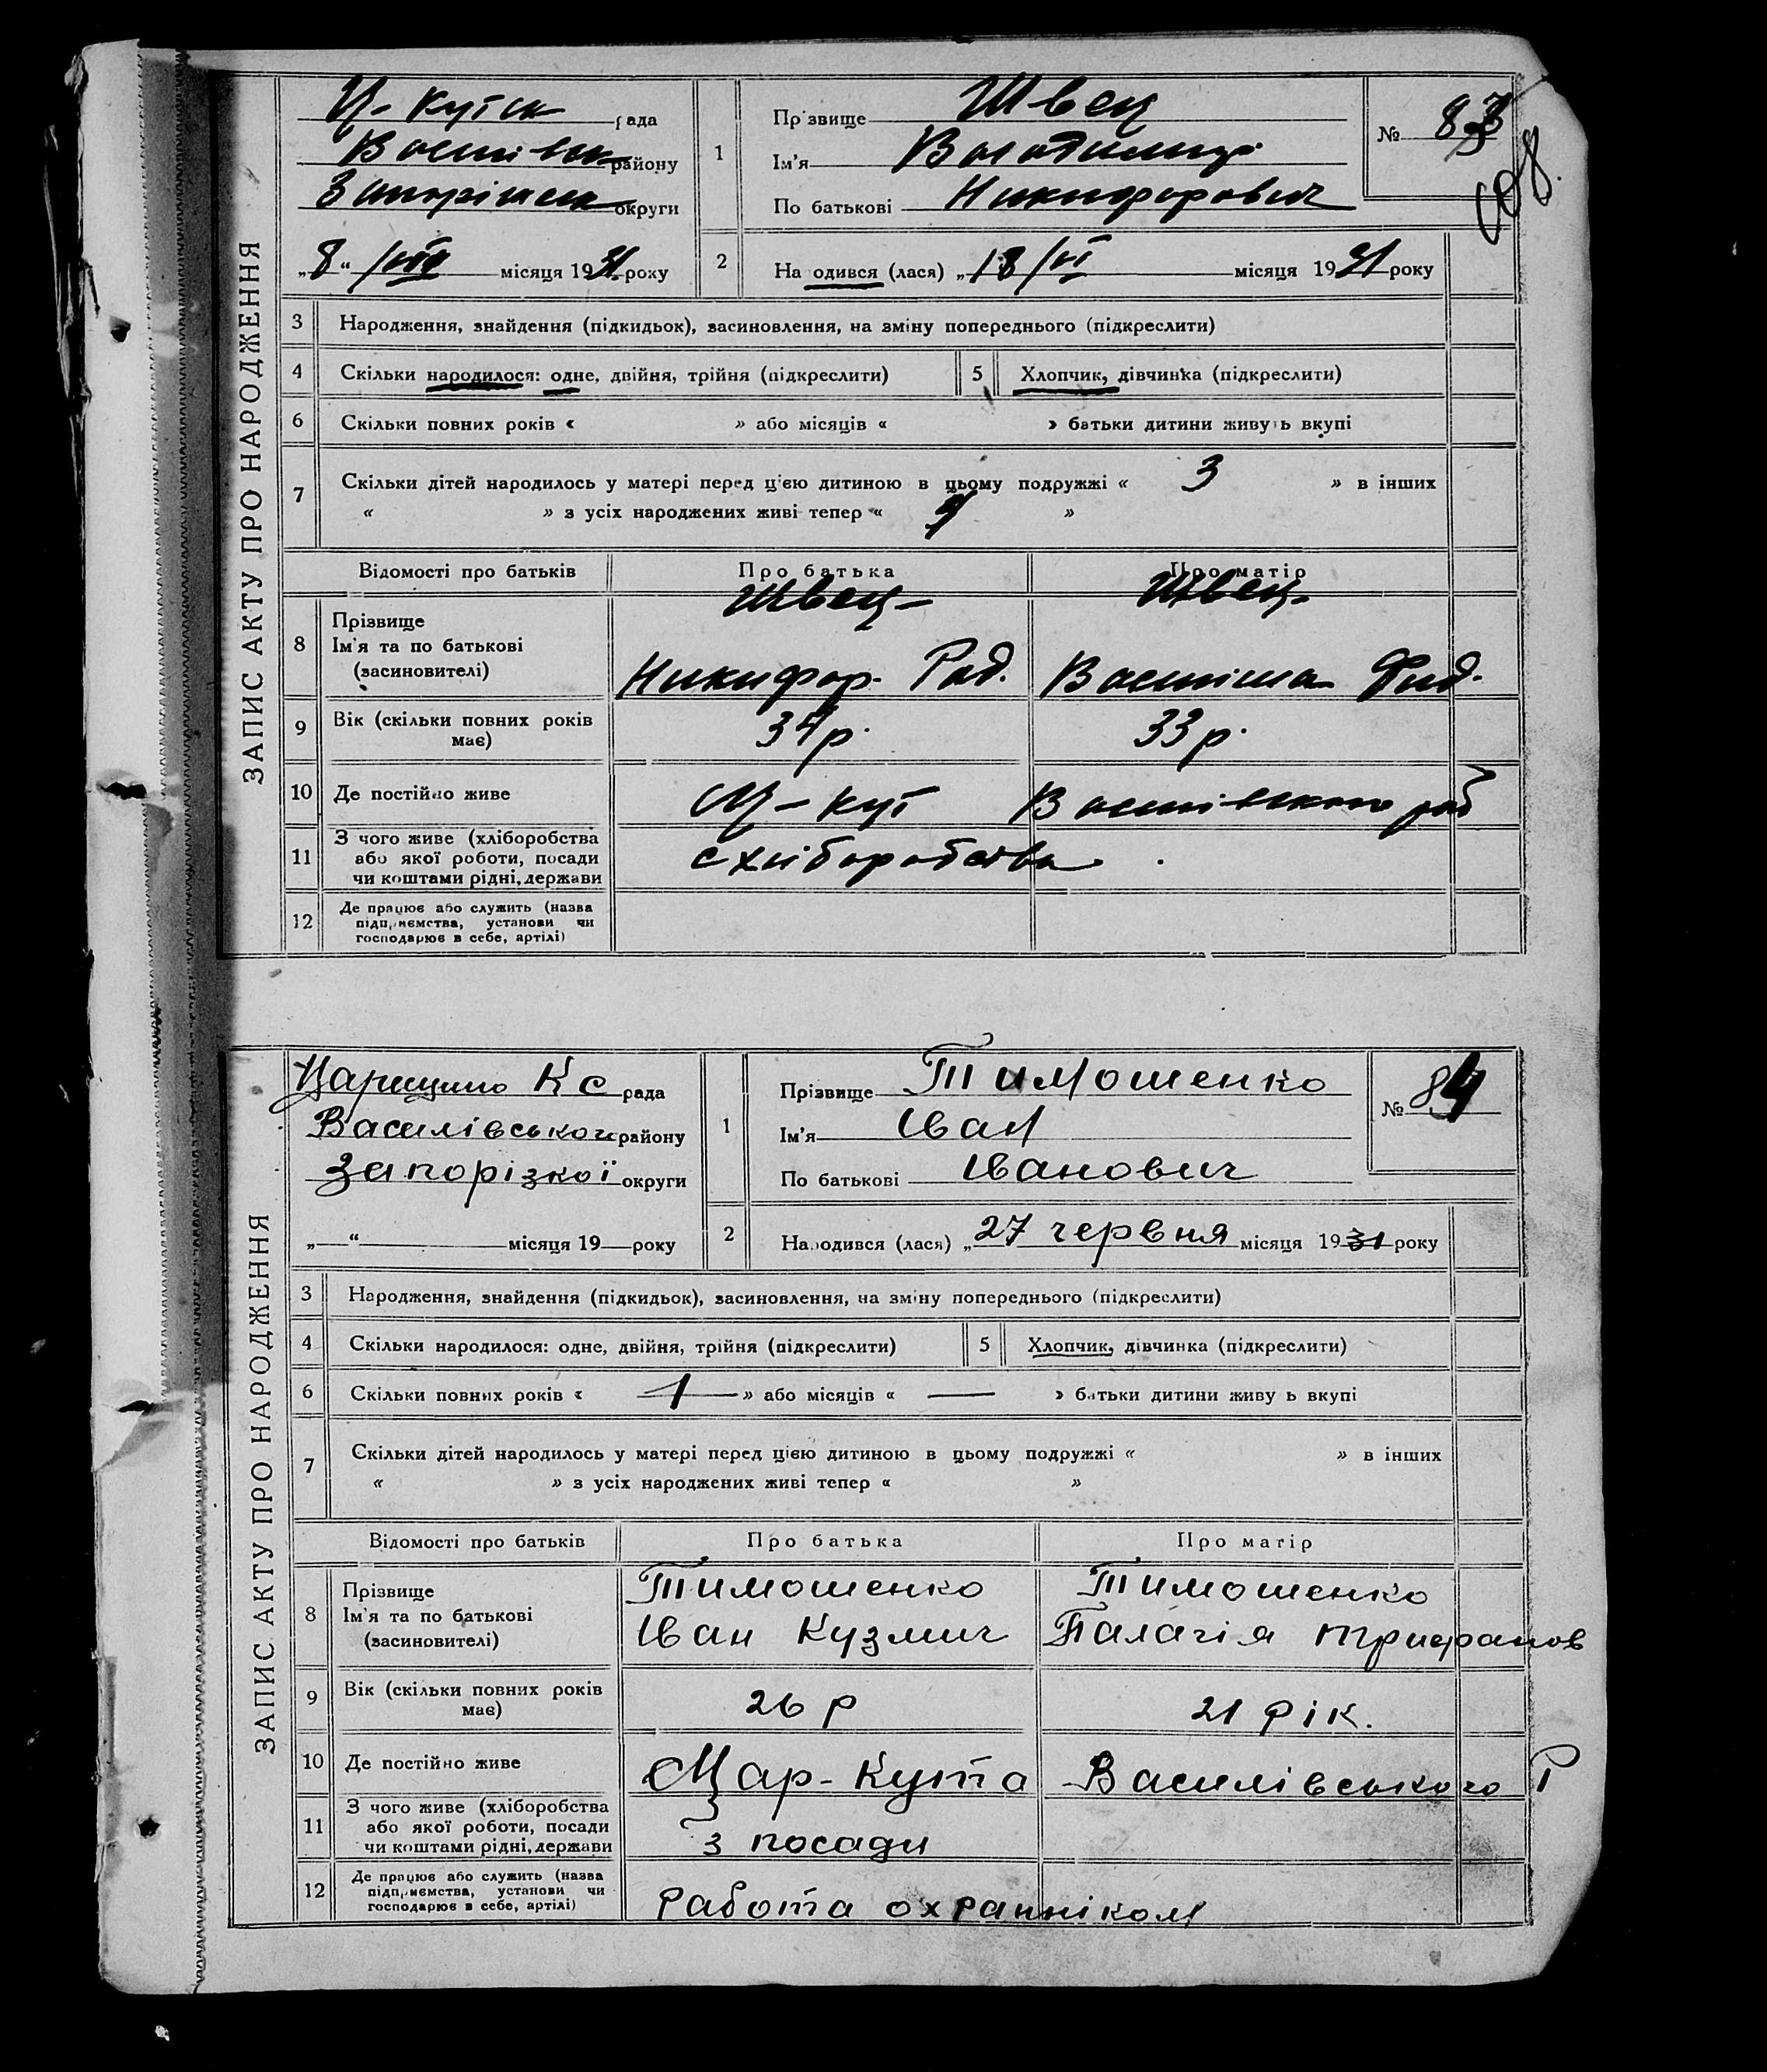 ЗАПИС АКТУ ПРО НАРОДЖЕННЯ
Ц-Кутск рада
Василівськ району
Запоріжськ округи
„8“ /VIII місяця 1931 року
1 Прізвище Швец
Ім'я Володимир
По батькові Никифорович
№ 83
2 На одився (лася) „18/VI місяця 1931 року
3 Народження, знайдення (підкидьок), засиновлення, на зміну попереднього (підкреслити)
4 Скільки народилося: одне, двійня, трійня (підкреслити) 5 Хлопчик, дівчинка (підкреслити)
6 Скільки повних років « » або місяців « » батьки дитини живуть вкупі
7 Скільки дітей народилось у матері перед цією дитиною в цьому подружжі « 3 » в інших
« » з усіх народжених живі тепер « »
Відомості про батьків Про батька Про матір
8 Прізвище Швец Швец
Ім'я та по батькові
(засиновителі) Никифор Род. Василіса Фид.
9 Вік (скільки повних років має) 34 р. 33 р.
10 Де постійно живе Ц-Кут Василівского рай
11 З чого живе (хліборобства
або якої роботи, посади
чи коштами рідні, держави с хліборобства
12 Де працює або служить (назва
підприємства, установи чи
господарює в себе, артілі)
ЗАПИС АКТУ ПРО НАРОДЖЕННЯ
К с рада
Василівського району
Запорізкої округи
„—“ місяця 19— року
1 Прізвище Тимошенко
Ім'я Іван
По батькові Іванович
№ 84
2 Народився (лася) „27 червня місяця 1931 року
3 Народження, знайдення (підкидьок), засиновлення, на зміну попереднього (підкреслити)
4 Скільки народилося: одне, двійня, трійня (підкреслити) 5 Хлопчик, дівчинка (підкреслити)
6 Скільки повних років « 1 — » або місяців « — » батьки дитини живу ь вкупі
7 Скільки дітей народилось у матері перед цією дитиною в цьому подружжі « » в інших
« » з усіх народжених живі тепер « »
Відомості про батьків Про батька Про матір
8 Прізвище Тимошенко Тимошенко
Ім'я та по батькові Іван Кузмич Палагія Трифанов
(засиновителі)
9 Вік (скільки повних років має) 26 р 21 рік.
10 Де постійно живе Цар-Кута Василівського Р
11 З чого живе (хліборобства
або якої роботи, посади
чи коштами рідні, держави З посади
12 Де працює або служить (назва
підприємства, установи чи
господарює в себе, артілі) Работа охранніком